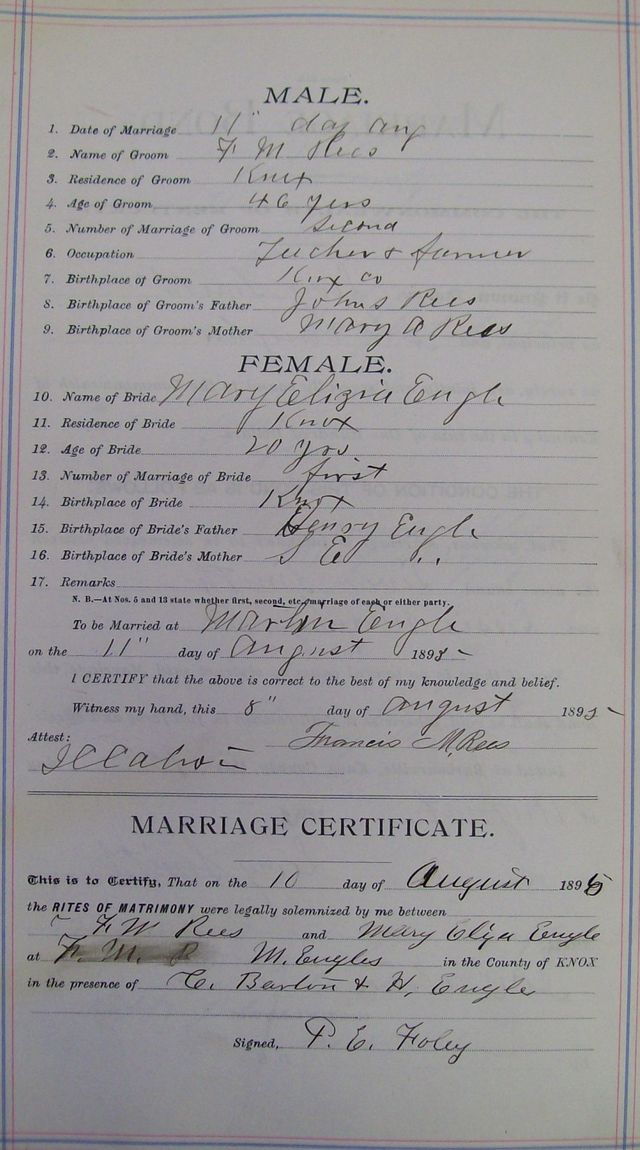 MALE.
1. Date of Marriage 11" day Aug
2. Name of Groom F M Rees
3. Residence of Groom Knox
4. Age of Groom 46 yers
5. Number of Marriage of Groom Second
6. Occupation Techer & farmer
7. Birthplace of Groom Knox co
8. Birthplace of Groom's Father John S Rees
9. Birthplace of Groom's Mother Mary A Rees
FEMALE.
10. Name of Bride Mary Elizia Engle
11. Residence of Bride Knox
12. Age of Bride 20 yrs
13. Number of Marriage of Bride first
14. Birthplace of Bride Knox
15. Birthplace of Bride's Father Henry Engle
16. Birthplace of Bride's Mother S E "
17. Remarks
N. B.—At Nos. 5 and 13 state whether first, second, etc., marriage of each or either party.
To be Married at Martin Engle
on the 11" day of August 1895
I CERTIFY that the above is correct to the best of my knowledge and belief.
Witness my hand, this 8" day of August 1895
Attest: Francis M. Rees
MARRIAGE CERTIFICATE.
This is to Certify, That on the 10 day of August 1895
the RITES OF MATRIMONY were legally solemnized by me between
F. M Rees and Mary Eliza Engle
at F. M. R M. Engles in the County of KNOX
in the presence of C. Barton & H, Engle
Signed, P. E. Foley